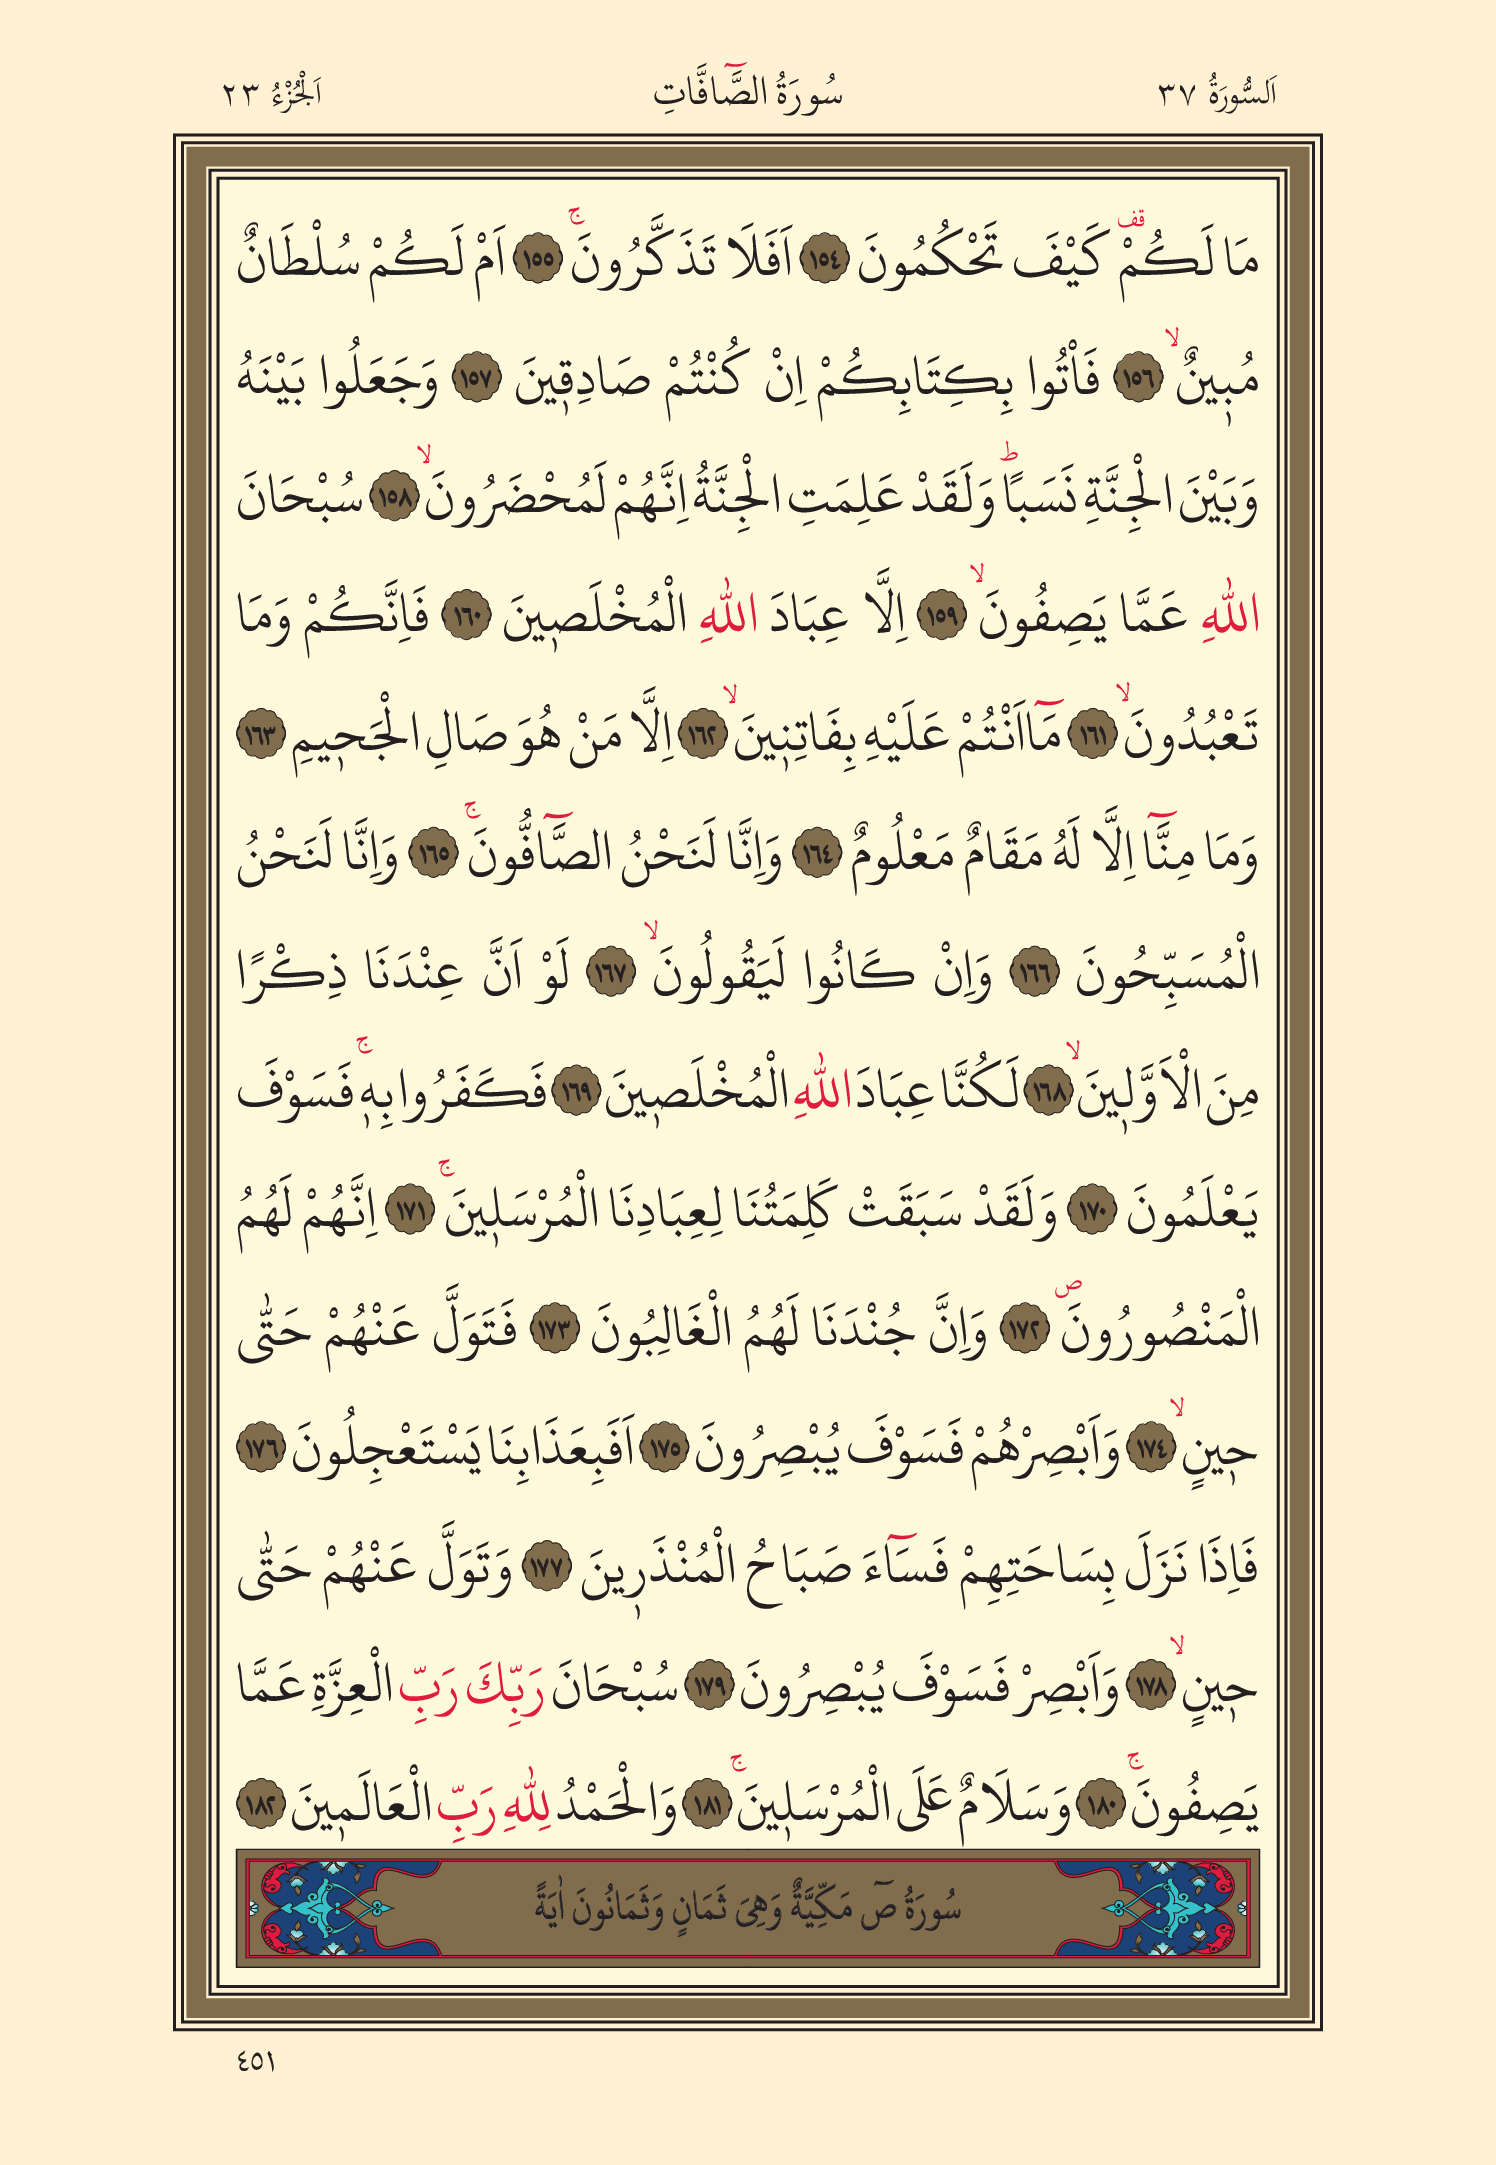 اَلسُّورَةُ ٣٧ سُورَةُ الصَّٓافَّاتِ اَلْجُزْءُ ٢٣
مَا لَكُمْ۠ قف كَيْفَ تَحْكُمُونَ ﴿١٥٤﴾ اَفَلَا تَذَكَّرُونَۚ ﴿١٥٥﴾ اَمْ لَكُمْ سُلْطَانٌ
مُب۪ينٌۙ ﴿١٥٦﴾ فَأْتُوا بِكِتَابِكُمْ اِنْ كُنْتُمْ صَادِق۪ينَ ﴿١٥٧﴾ وَجَعَلُوا بَيْنَهُ
وَبَيْنَ الْجِنَّةِ نَسَبًاۜ وَلَقَدْ عَلِمَتِ الْجِنَّةُ اِنَّهُمْ لَمُحْضَرُونَۙ ﴿١٥٨﴾ سُبْحَانَ
اللّٰهِ عَمَّا يَصِفُونَۙ ﴿١٥٩﴾ اِلَّا عِبَادَ اللّٰهِ الْمُخْلَص۪ينَ ﴿١٦٠﴾ فَاِنَّكُمْ وَمَا
تَعْبُدُونَۙ ﴿١٦١﴾ مَٓا اَنْتُمْ عَلَيْهِ بِفَاتِن۪ينَۙ ﴿١٦٢﴾ اِلَّا مَنْ هُوَ صَالِ الْجَح۪يمِ ﴿١٦٣﴾
وَمَا مِنَّٓا اِلَّا لَهُ مَقَامٌ مَعْلُومٌ ﴿١٦٤﴾ وَاِنَّا لَنَحْنُ الصَّٓافُّونَۚ ﴿١٦٥﴾ وَاِنَّا لَنَحْنُ
الْمُسَبِّحُونَ ﴿١٦٦﴾ وَاِنْ كَانُوا لَيَقُولُونَۙ ﴿١٦٧﴾ لَوْ اَنَّ عِنْدَنَا ذِكْرًا
مِنَ الْاَوَّل۪ينَۙ ﴿١٦٨﴾ لَكُنَّا عِبَادَ اللّٰهِ الْمُخْلَص۪ينَ ﴿١٦٩﴾ فَكَفَرُوا بِه۪ۚ فَسَوْفَ
يَعْلَمُونَ ﴿١٧٠﴾ وَلَقَدْ سَبَقَتْ كَلِمَتُنَا لِعِبَادِنَا الْمُرْسَل۪ينَۚ ﴿١٧١﴾ اِنَّهُمْ لَهُمُ
الْمَنْصُورُونَۖ ﴿١٧٢﴾ وَاِنَّ جُنْدَنَا لَهُمُ الْغَالِبُونَ ﴿١٧٣﴾ فَتَوَلَّ عَنْهُمْ حَتّٰى
ح۪ينٍۙ ﴿١٧٤﴾ وَاَبْصِرْهُمْ فَسَوْفَ يُبْصِرُونَ ﴿١٧٥﴾ اَفَبِعَذَابِنَا يَسْتَعْجِلُونَ ﴿١٧٦﴾
فَاِذَا نَزَلَ بِسَاحَتِهِمْ فَسَٓاءَ صَبَاحُ الْمُنْذَر۪ينَ ﴿١٧٧﴾ وَتَوَلَّ عَنْهُمْ حَتّٰى
ح۪ينٍۙ ﴿١٧٨﴾ وَاَبْصِرْ فَسَوْفَ يُبْصِرُونَ ﴿١٧٩﴾ سُبْحَانَ رَبِّكَ رَبِّ الْعِزَّةِ عَمَّا
يَصِفُونَۚ ﴿١٨٠﴾ وَسَلَامٌ عَلَى الْمُرْسَل۪ينَۚ ﴿١٨١﴾ وَالْحَمْدُ لِلّٰهِ رَبِّ الْعَالَم۪ينَ ﴿١٨٢﴾
سُورَةُ صٓ مَكِّيَّةٌ وَهِيَ ثَمَانٍ وَثَمَانُونَ اٰيَةً
٤٥١